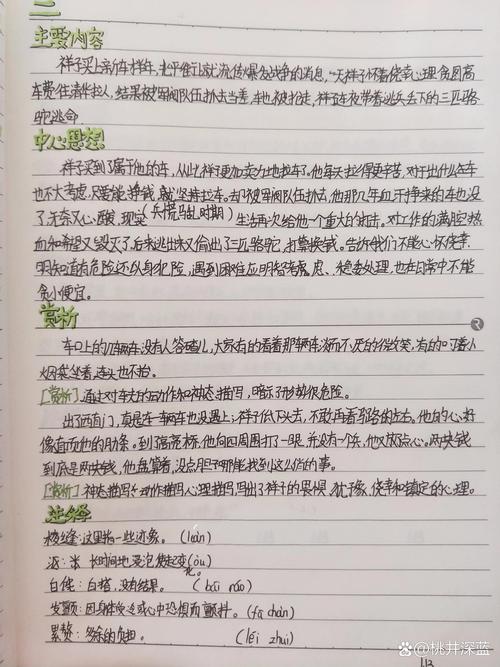 二
主要内容
祥子买上新车半年，北平城让就流传爆发战争的消息，一天祥子怀着侥幸心理贪图高
车费往清华拉人，结果被军阀队伍抓去当差，车也被抢走，祥子连夜带着逃兵丢下的三匹骆
驼逃命
中心思想
祥子买到了属于他的车，从此，祥子更加卖力地拉车了。他每天拉得更辛苦，对于出什么差
也不大考虑，只要能挣钱，就坚持拉车。却被军阀队伍抓去，他那几年血汗挣来的车也没
了无奈又心酸，现实（兵慌马乱时期）生活再次给他一个重大的打击。对工作的满腔热
血和希望又毁灭了，后来逃出来又偷出了三匹骆驼，打算换钱。告诉我们不能心怀侥幸，
明知道有危险还以身犯险，遇到困难应明智考虑、稳妥处理，也在日常中不能
贪小便宜。
赏析
车口上的几辆车没有人答碴儿，大家有的看着那辆车漏而不厌的微笑，有的叼着小
烟袋坐着，连头也不抬。
[赏析]：通过对车夫的动作和神态描写，暗示了形势很危险。
出了西直门，真是车一辆车也没遇上；祥子低下头去，不敢再看马路的左右。他的心好
像直顶他的肋条。到了高亮桥，他向四周围打了一眼，并没有一个兵，他又放点心。两块钱
到底是两块钱，他盘算着，没点胆子哪能找到这么俏的事。
[赏析]：神态描写、动作描写心理描写，写出了祥子的畏惧、犹豫、侥幸和镇定的心理。
这里指一些迹象。
沤：长时间地浸泡使起变化。(òu)
白饶：白搭，没有结果。(bái ráo)
发颤：因身体受冷或心中恐惧而颤抖。(fā chàn)
累赘：多余的负担。(léi zhui)
@桃井深蓝